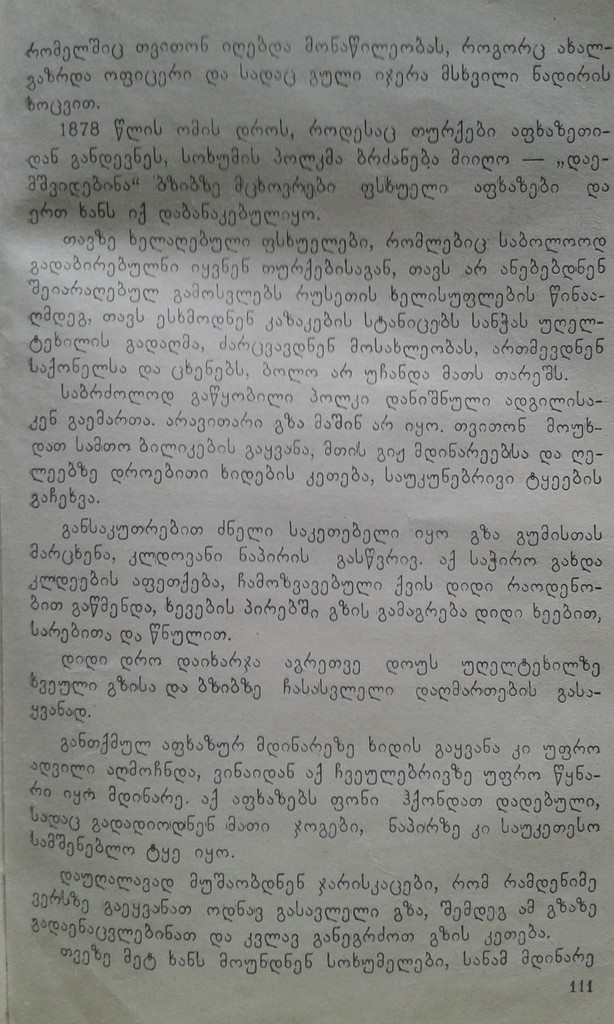 რომელშიც თვითონ იღებდა მონაწილეობას, როგორც ახალ-
გაზრდა ოფიცერი და სადაც გული იჯერა მსხვილი ნადირის
ხოცვით.
1878 წლის ომის დროს, როდესაც თურქები აფხაზეთი-
დან განდევნეს, სოხუმის პოლკმა ბრძანება მიიღო — „დაე-
მშვიდებინა“ ბზიბზე მცხოვრები ფსხუელი აფხაზები და
ერთ ხანს იქ დაბანაკებულიყო.
თავზე ხელაღებული ფსხუელები, რომლებიც საბოლოოდ
გადაბირებულნი იყვნენ თურქებისაგან, თავს არ ანებებდნენ
შეიარაღებულ გამოსვლებს რუსეთის ხელისუფლების წინაა-
ღმდეგ, თავს ესხმოდნენ კაზაკების სტანიცებს სანჭას უღელ-
ტეხილის გადაღმა, ძარცვავდნენ მოსახლეობას, ართმევდნენ
საქონელსა და ცხენებს, ბოლო არ უჩანდა მათს თარეშს.
საბრძოლოდ გაწყობილი პოლკი დანიშნული ადგილისა-
კენ გაემართა. არავითარი გზა მაშინ არ იყო. თვითონ მოუხ-
დათ სამთო ბილიკების გაყვანა, მთის გიჟ მდინარეებსა და ღე-
ლეებზე დროებითი ხიდების კეთება, საუკუნებრივი ტყეების
გაჩეხვა.
განსაკუთრებით ძნელი საკეთებელი იყო გზა გუმისთას
მარცხენა, კლდოვანი ნაპირის გასწვრივ. აქ საჭირო გახდა
კლდეების აფეთქება, ჩამოზვავებული ქვის დიდი რაოდენო-
ბით გაწმენდა, ხევების პირებში გზის გამაგრება დიდი ხეებით,
სარებითა და წნულით.
დიდი დრო დაიხარჯა აგრეთვე დოუს უღელტეხილზე
ხვეული გზისა და ბზიბზე ჩასასვლელი დაღმართების გასა-
ყვანად.
განთქმულ აფხაზურ მდინარეზე ხიდის გაყვანა კი უფრო
ადვილი აღმოჩნდა, ვინაიდან აქ ჩვეულებრივზე უფრო წყნა-
რი იყო მდინარე. აქ აფხაზებს ფონი ჰქონდათ დადებული,
სადაც გადადიოდნენ მათი ჯოგები, ნაპირზე კი საუკეთესო
სამშენებლო ტყე იყო.
დაუღალავად მუშაობდნენ ჯარისკაცები, რომ რამდენიმე
ვერსზე გაეყვანათ ოდნავ გასავლელი გზა, შემდეგ ამ გზაზე
გადაენაცვლებინათ და კვლავ განეგრძოთ გზის კეთება.
თვეზე მეტ ხანს მოუნდნენ სოხუმელები, სანამ მდინარე
111